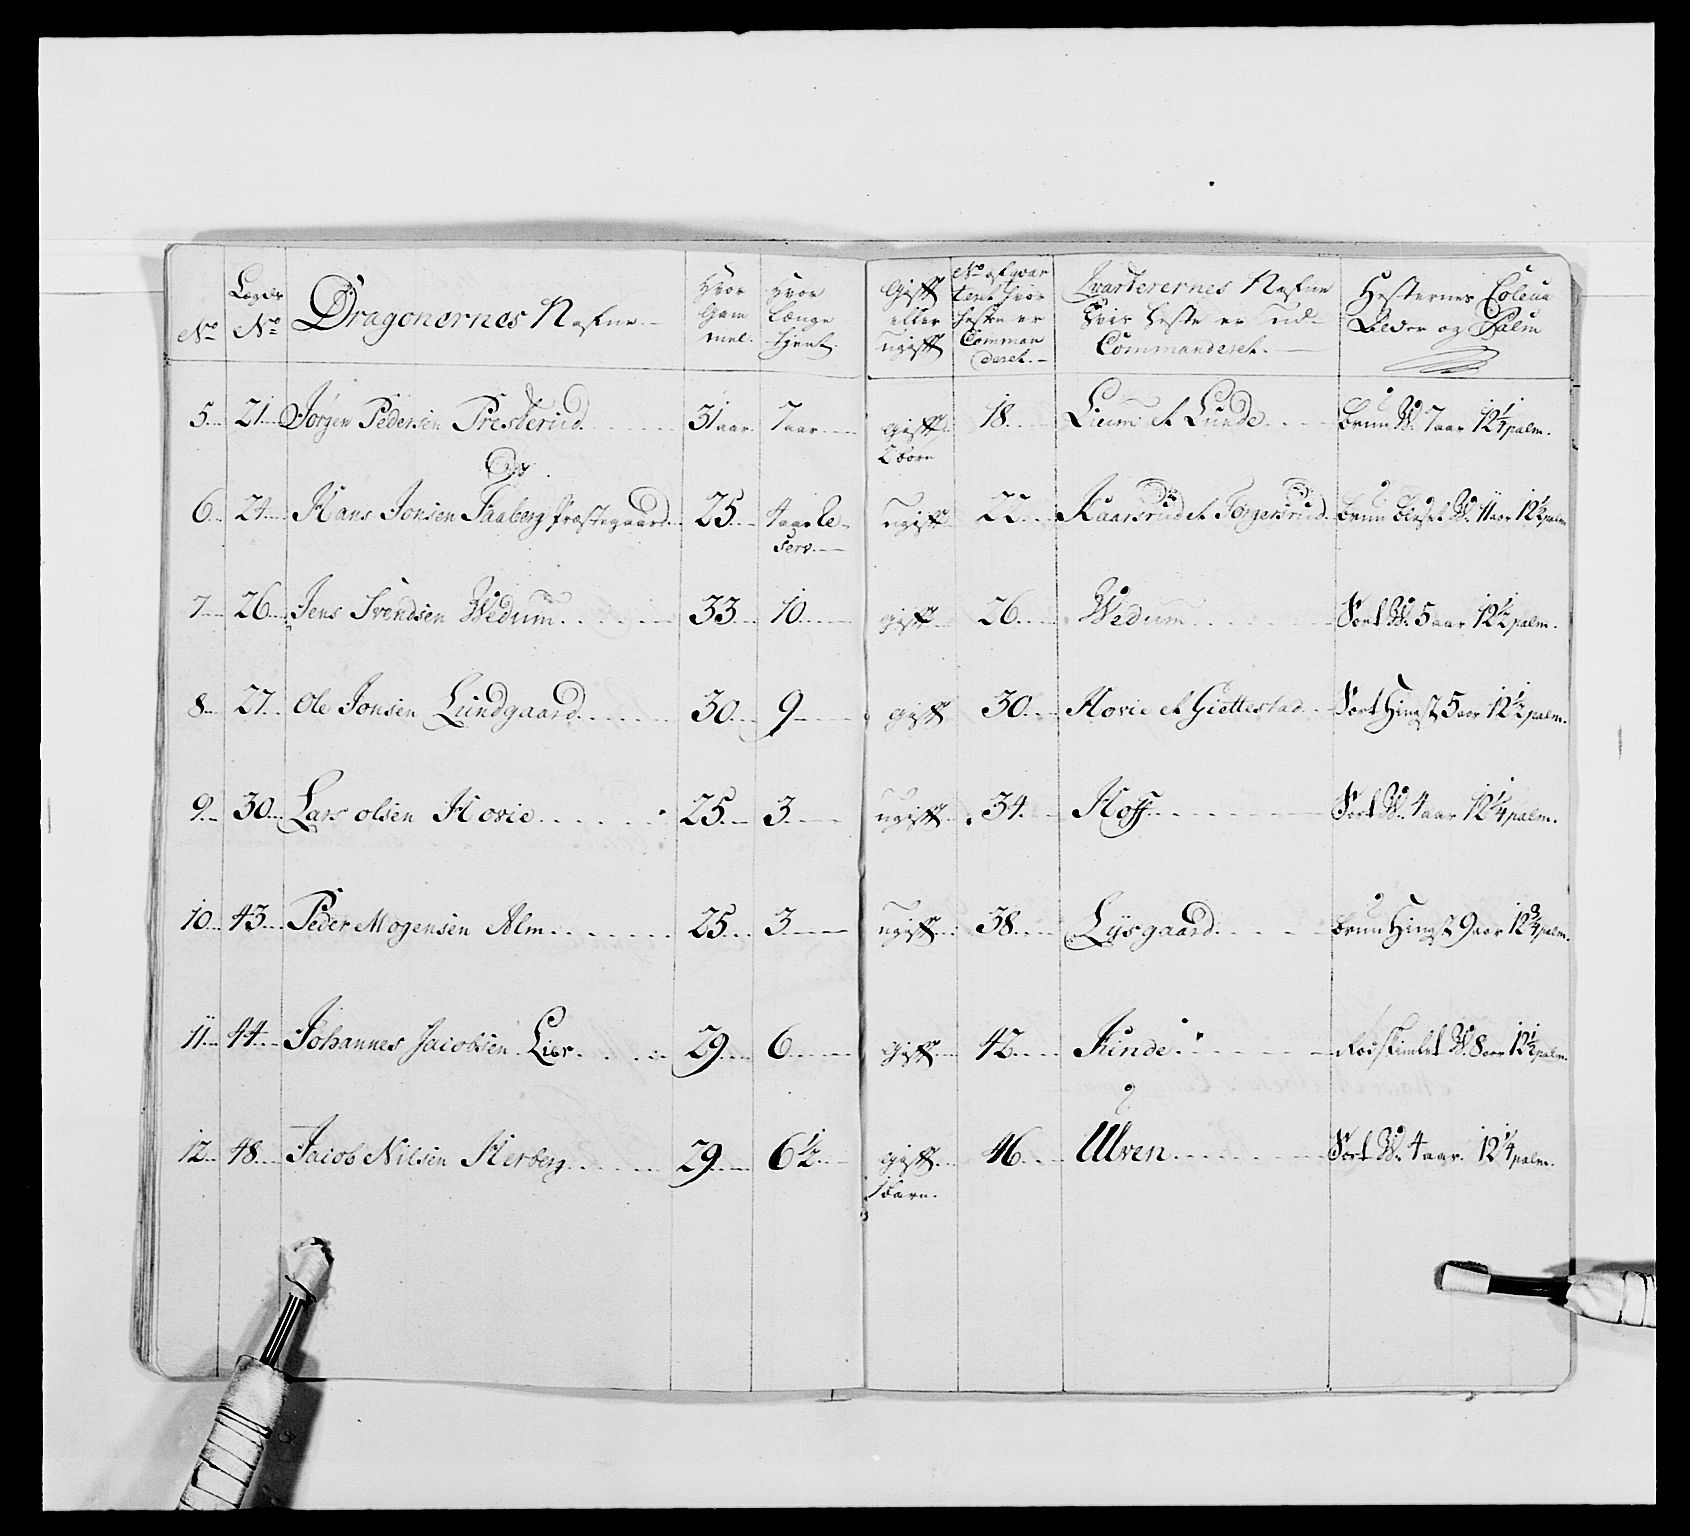 No Lægds No Dragonernes Nafne Hvor Gam mel. Hvor Længe tient. Gift eller ugift No af qvar teret hvor hesten er Comman deret. Qvarterernes Nafne Hvis Heste er ud Commanderet. Hesternes Coleur Alder og Palm
5 21 Jørgen Pedersen Presterud 31 aar 7 aar gift 18 Lium et Lunde brun W. 7 aar 12¼ palm.
2 børn
6 24 Hans Jonsen Faaberg Præstegaard 25 4 aar Re ugift 22 Kaarsrud et Torgersrud brun blesset W. 11 aar 12½ palm
serv.
7 26 Jens Svendsen Wedum 33 10 gift 26 Wedum Sort W. 5 aar 12½ palm.
8 27 Ole Jonsen Lundgaard 30 9 gift 30 Hovie et Giettestad Sort Hingst 5 aar 12½ palm.
9 30 Lars olsen Hovie 25 3 ugift 34 Hoff Sort W. 4 aar 12¼ palm.
10 43 Peder Mogensen Alm 25 3 ugift 38 Lysgaard brun Hingst 9 aar 12¾ palm.
11 44 Johannes Jacobsen Lier 29 6 gift 42 Kinde Rødskimlet W. 8 aar 12½ palm.
12 48 Jacob Nilsen Herberg 29 6½ gift 46 Ulven Sort W. 4 aar. 12¼ palm.
1 barn.